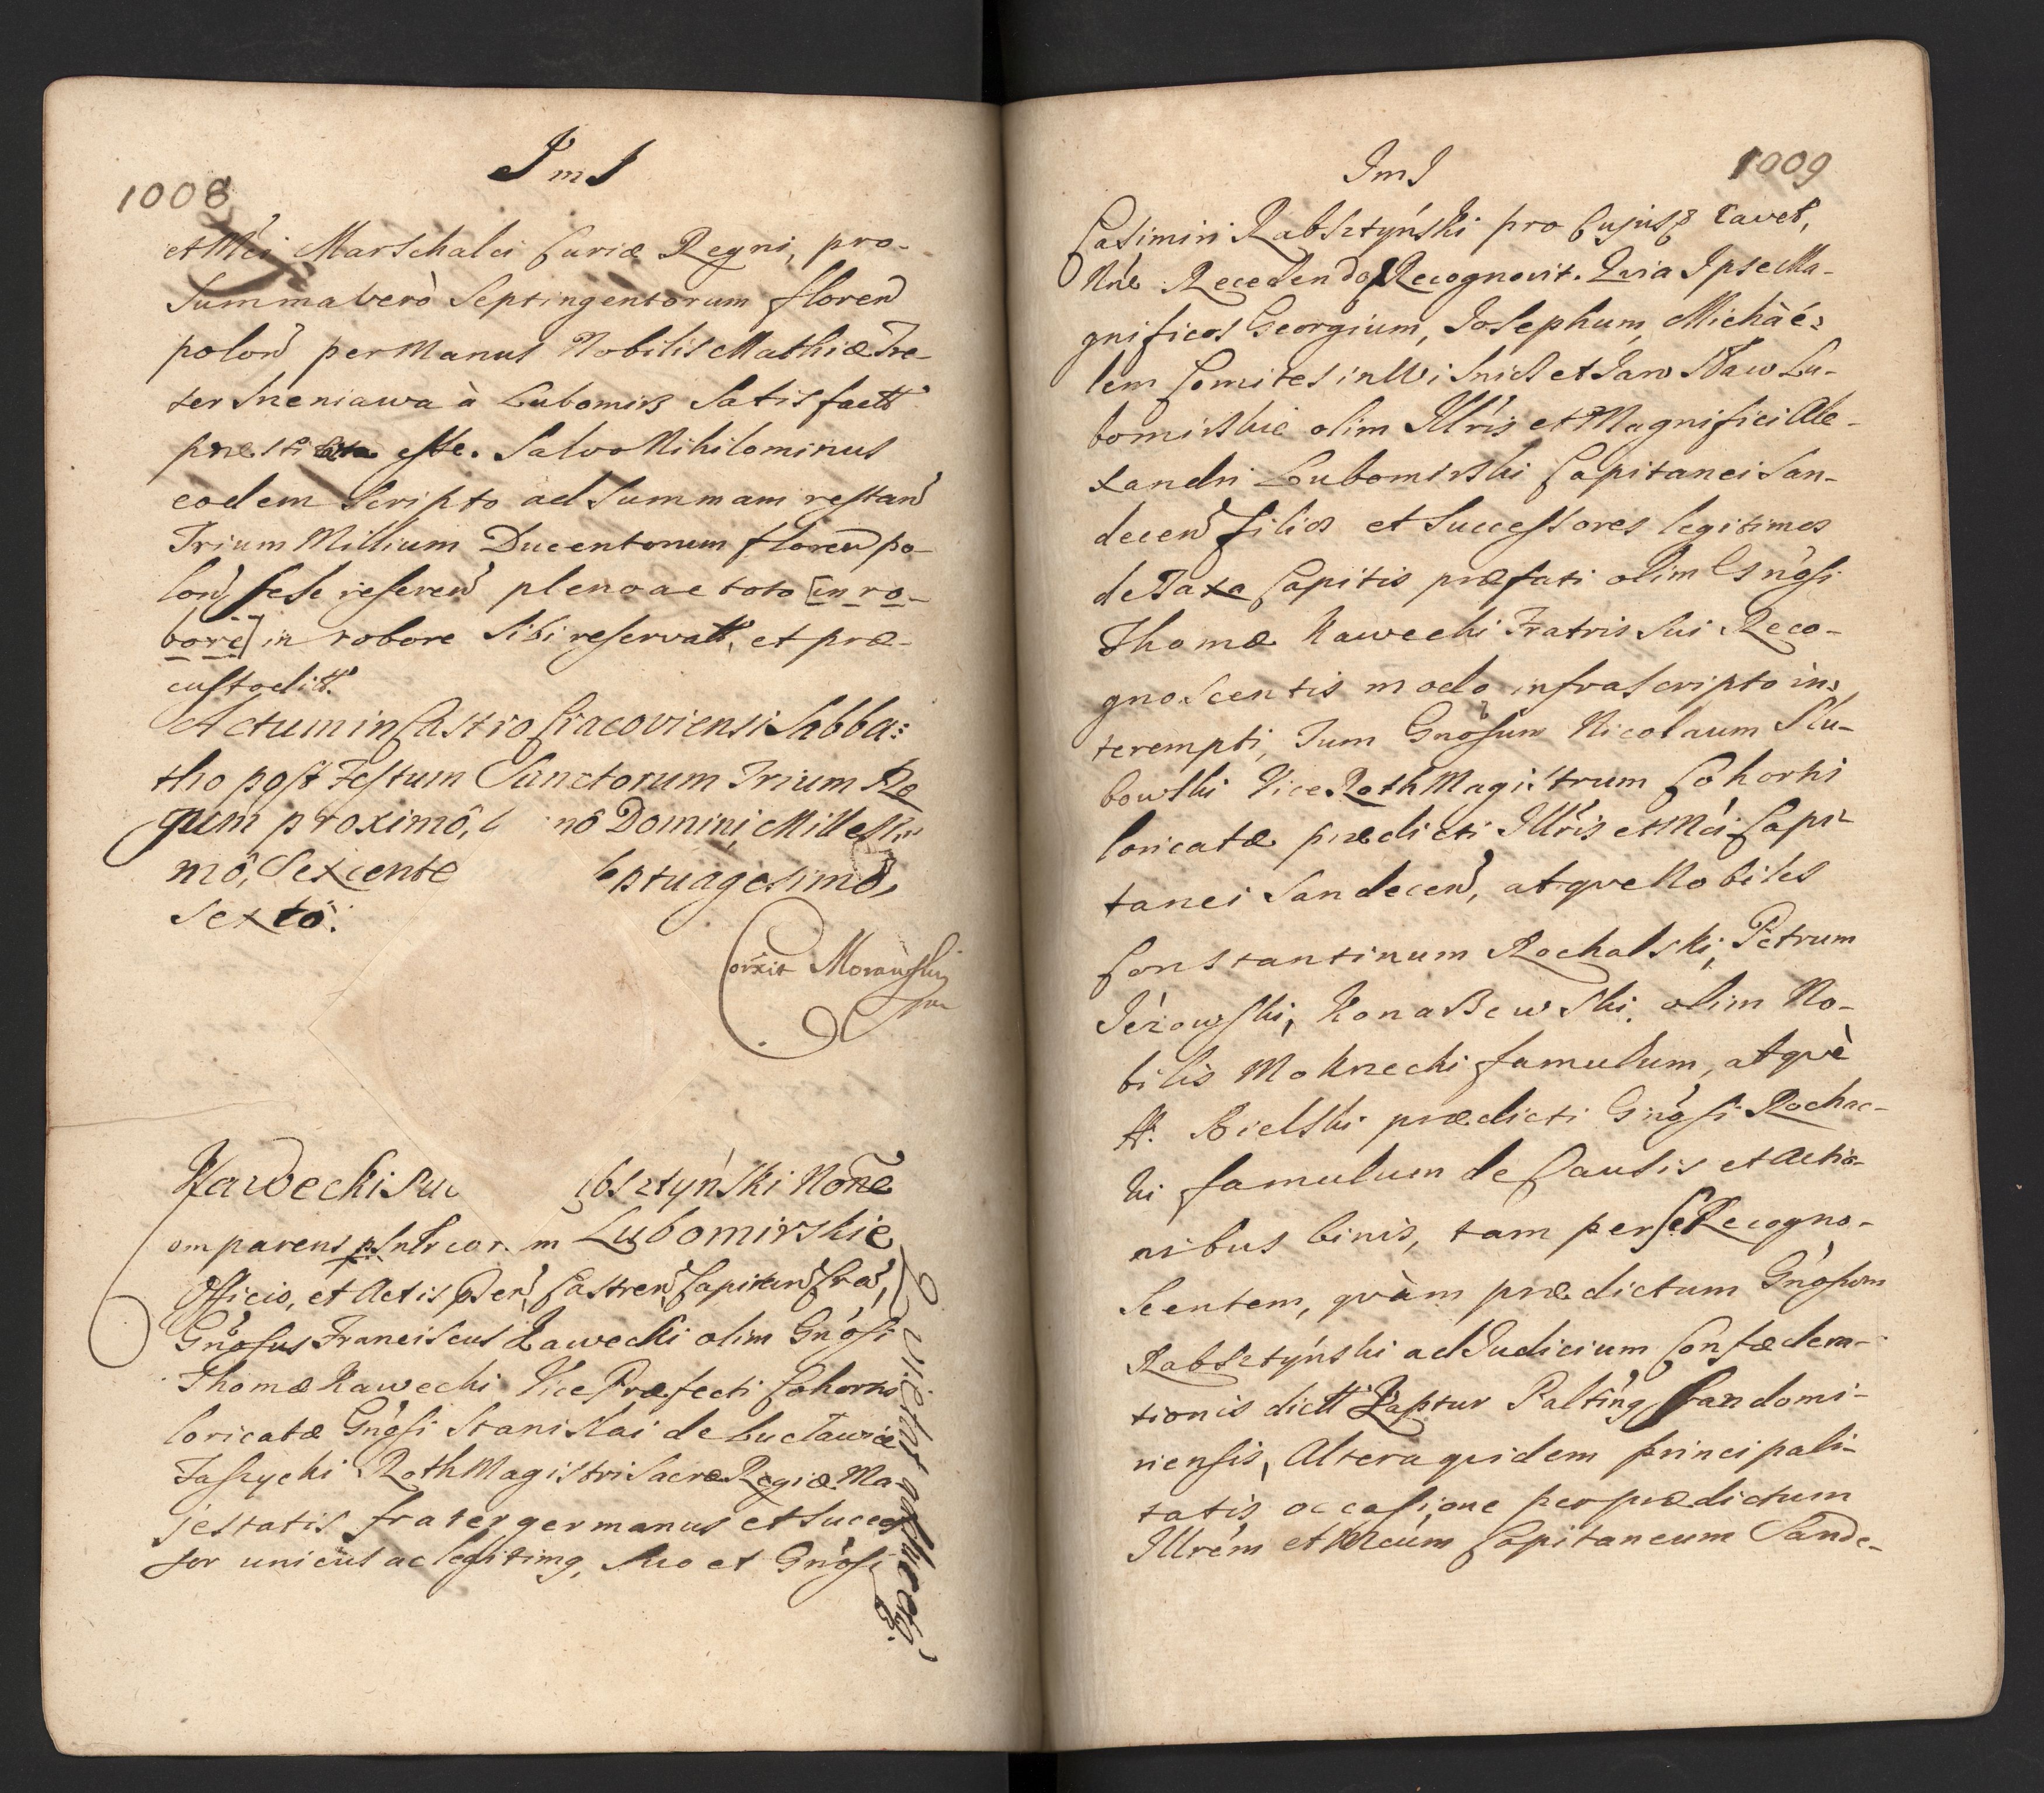 1008
J m J
et Mci Marschalci Curiæ Regni, pro-
Summa verò Septingentorum floren
polon per Manus Nobilis Mathiæ Tre-
ter Sieniawa à Lubomirs Satisfactt
præstitta esse. Salvo Nihilominus
eodem Scripto ad Summam restan
Trium Millium Ducentorum floren po-
lon sese referen pleno ac toto [in ro-
bore] in robore Sibi reservatt, et præ-
custoditt.
Actum in Castro Cracoviensi Sabba:
tho post Festum Sanctorum Trium Re
gum proximô, nô Domini, Millesi
mô, Sexcente ptuagesimô,
Sextô.
Corxit Morawski
Kawecki Suo bsztyński Noñe
omparens psntr cor. m Lubomirskie
Officio, et Actis Pñ Castren Capitan Cra
Gnosus Franciscus Kawecki olim Gnosi
Thomæ Kawecki Vice Præfecti Cohortis
loricatæ Gnosi Stanislai de Lucławice
Taszycki RothMagistri Sacræ Regiæ Ma-
jestatis frater germanus et Succes
sor unicus ac legitimg, Suo et Gnosi
Quietat adhucdg.
1009
JmJ
Casimiri Rabsztyński pro Cujusq cavet,
Nñe Recedendo Recognovit. Quia Ipse Ma-
gnificos Georgium, Josephum, Michàé:
lem Comites in Wisnicz et Jarosław Lu-
bomirskie olim Illris et Magnifici Ale-
xandri Lubomirski Capitanei San-
decen filios et Successores legitimos
de Taxa Capitis præfati olim Gnosi
Thomæ Kawecki Fratris Sui Reco-
gnoscentis modo infrascripto in:
terempti, Tum Gnosum Nicolaum Słu-
bowski Vice RothMagistrum Cohortis
loricatæ prædicti Illris et Mci Capi-
tanei Sandecen, atque Nobiles
Constantinum Rochalski, Petrum
Jeżowski, Konaszewski, olim No-
bilis Mokrzecki famulum, atquè
N. Bielski prædicti Gnosi Rochac-
ki famulum de Causis et Actio-
nibus binis, tam per se Recogno-
Scentem, quàm prædictum Gnosum
Rabsztyński ad Judicium Confœdera-
tionis dictt Kaptur Palting Sandomi-
riensis, Altera quidem principali-
tatis occasione per prædictum
Illrem et Mcum Capitaneum Sande-